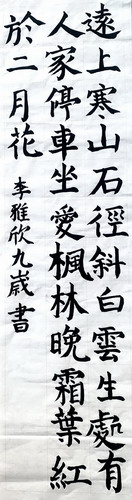 遠上寒山石徑斜白雲生處有
人家停車坐愛楓林晚霜葉紅
於二月花
李雅欣九歲書